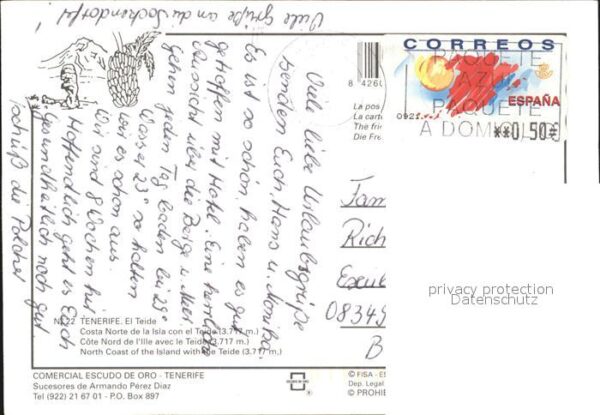 Viele Grüße an die Sockendorfer!
Viele liebe Urlaubsgrüße
senden Euch Hans u. Monika.
Es ist so schön, haben es gut
getroffen mit Hotel. Eine herrliche
Aussicht über die Berge u. Meer
gehen jeden Tag baden bei 29°
Wasser 23° so halten
wir es schon aus.
Wir sind 8 Wochen hier
Hoffendlich geht es Euch
gesundheitlich noch gut.
Tschüß die
CORREOS
PAQUETE
AZUL
PAQUETE
A DOMICILIO
ESPAÑA
**0,50€
8 4260
La pos
La carte
The frie
Die Fre
Fam
Rich
08349
privacy protection
Datenschutz
N.22 TENERIFE. El Teide
Costa Norte de la Isla con el Teide (3.717 m.)
Côte Nord de l'Ille avec le Teide (3.717 m.)
North Coast of the Island with the Teide (3.717 m.)
COMERCIAL ESCUDO DE ORO - TENERIFE
Sucesores de Armando Pérez Diaz
Tel (922) 21 67 01 - P.O. Box 897
© FISA - ES
Dep. Legal
© PROHIB